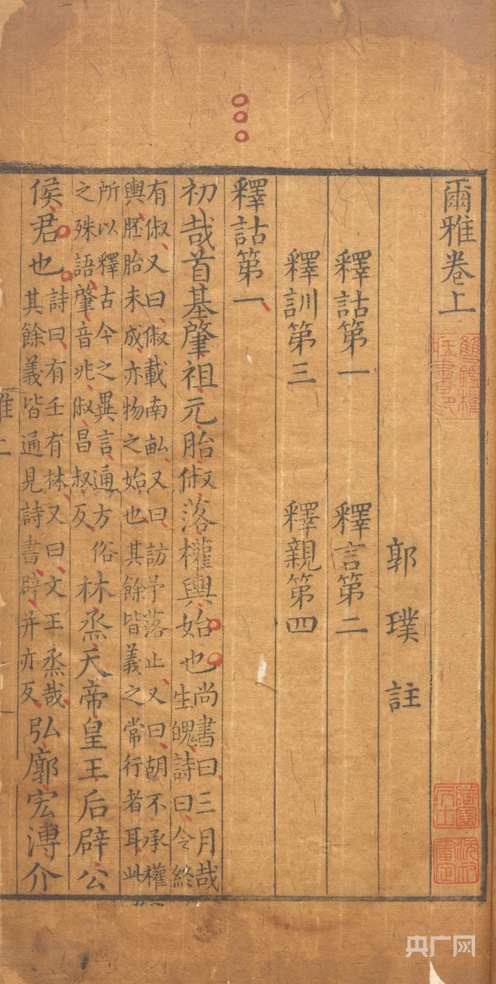 爾雅卷上
郭璞註
釋詁第一 釋言第二
釋訓第三 釋親第四
釋詁第一
初哉首基肇祖元胎俶落權輿始也尚書曰三月哉
生魄詩曰令終
有俶又曰俶載南畝又曰訪予落止又曰胡不承權
輿胚胎未成亦物之始也其餘皆義之常行者耳此
所以釋古今之異言通方俗
之殊語肇音兆俶昌叔反
林烝天帝皇王后辟公
侯君也
詩曰有壬有林又曰文王烝哉
其餘義皆通見詩書辟并亦反
弘廓宏溥介
央广网